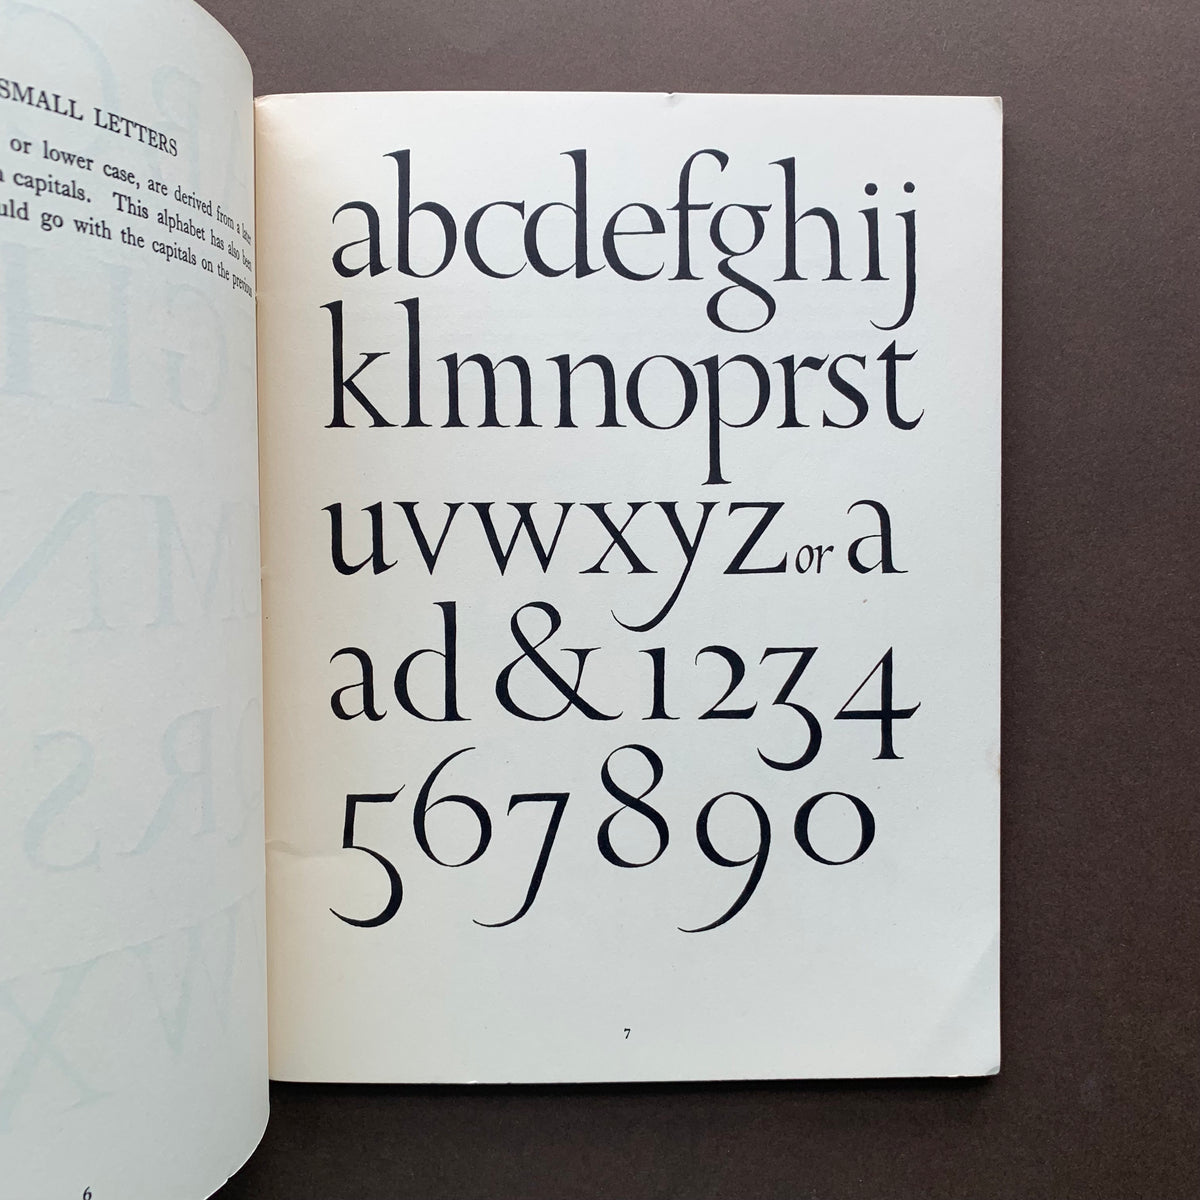 SMALL LETTERS
or lower case, are derived from a later
capitals. This alphabet has also been
go with the capitals on the previous
6
abcdefghij
klmnoprst
uvwxyz or a
ad & 1234
567890
7